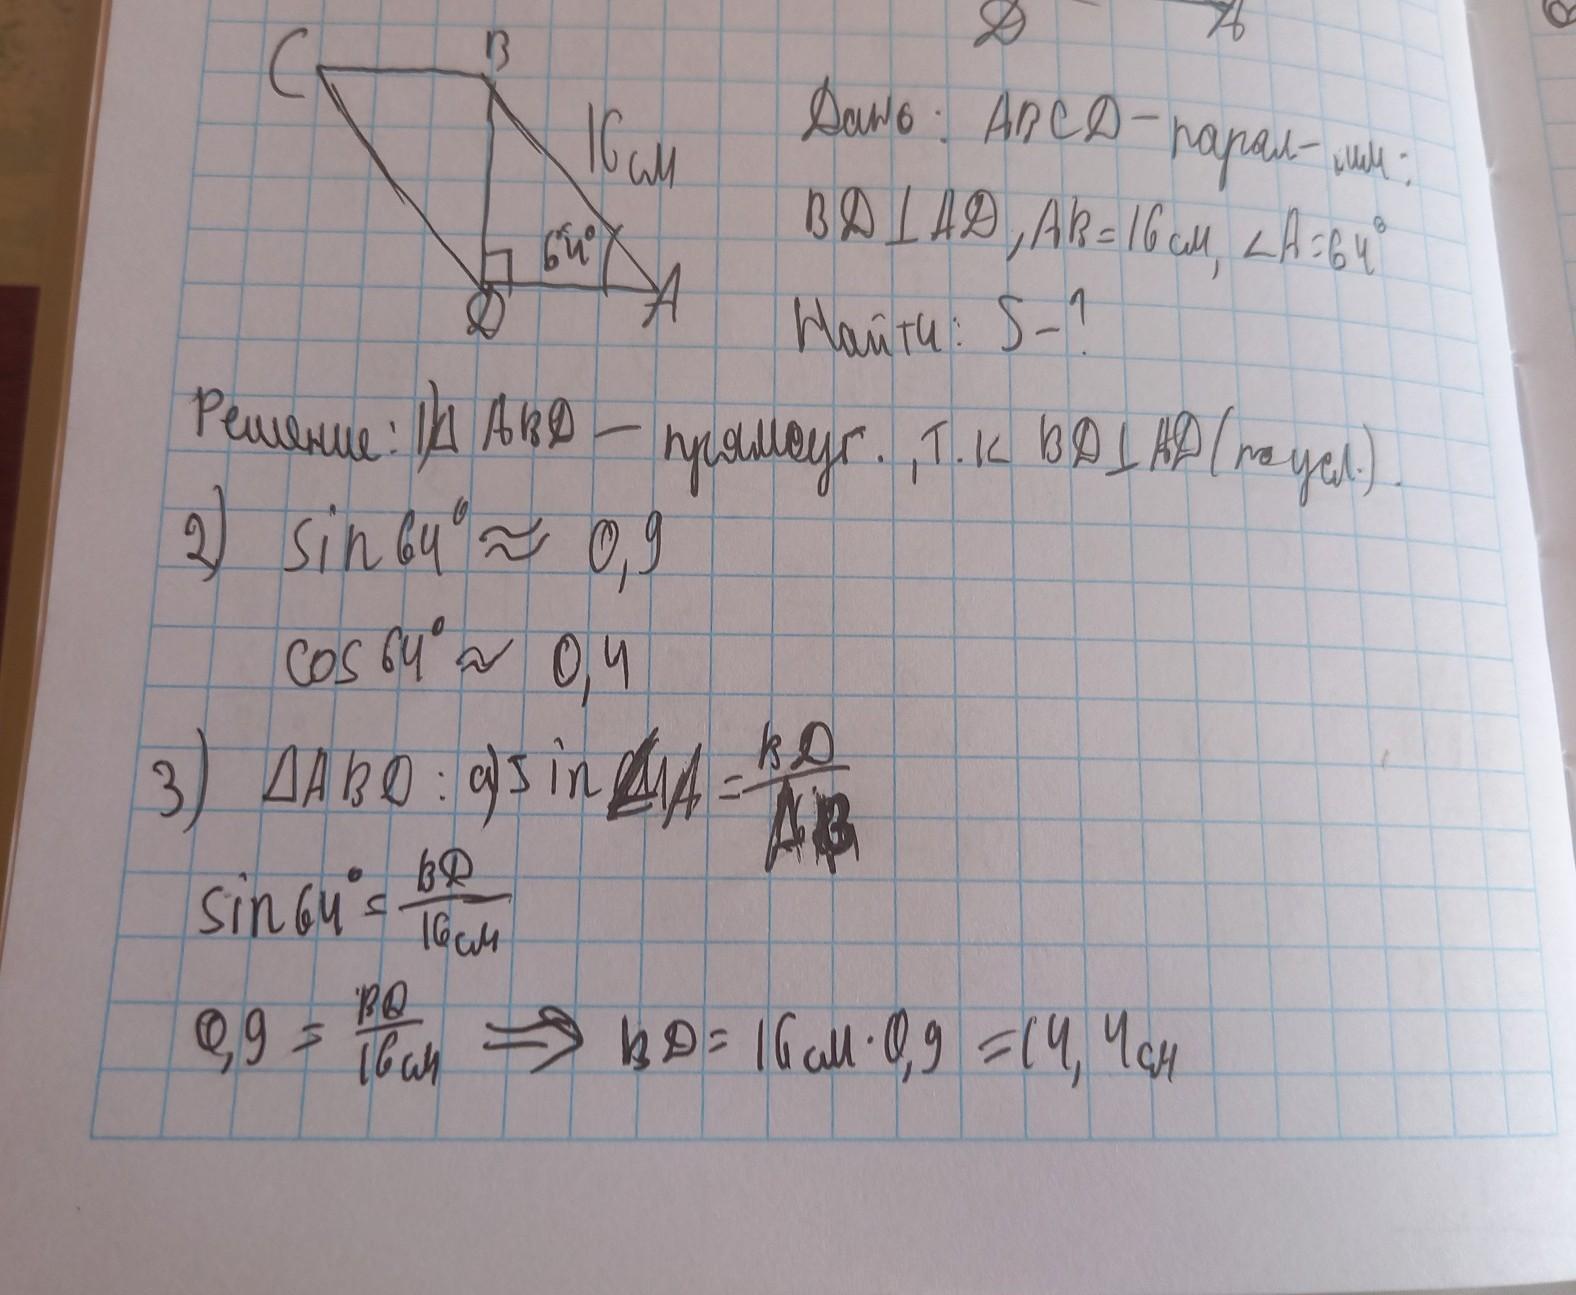 D A
C B
16 см
64°
D A
Дано: ABCD - парал-мм:
BD⊥AD, AB=16 см, ∠A=64°
Найти: S-?
Решение: 1) Δ ABD - прямоуг., т.к BD⊥AD (по усл.).
2) sin 64° ≈ 0,9
cos 64° ≈ 0,4
3) ΔABD: а) sin ∠A = BD/AB
sin 64° = BD/16 см
0,9 = BD/16 см ⇒ BD = 16 см · 0,9 = 14,4 см